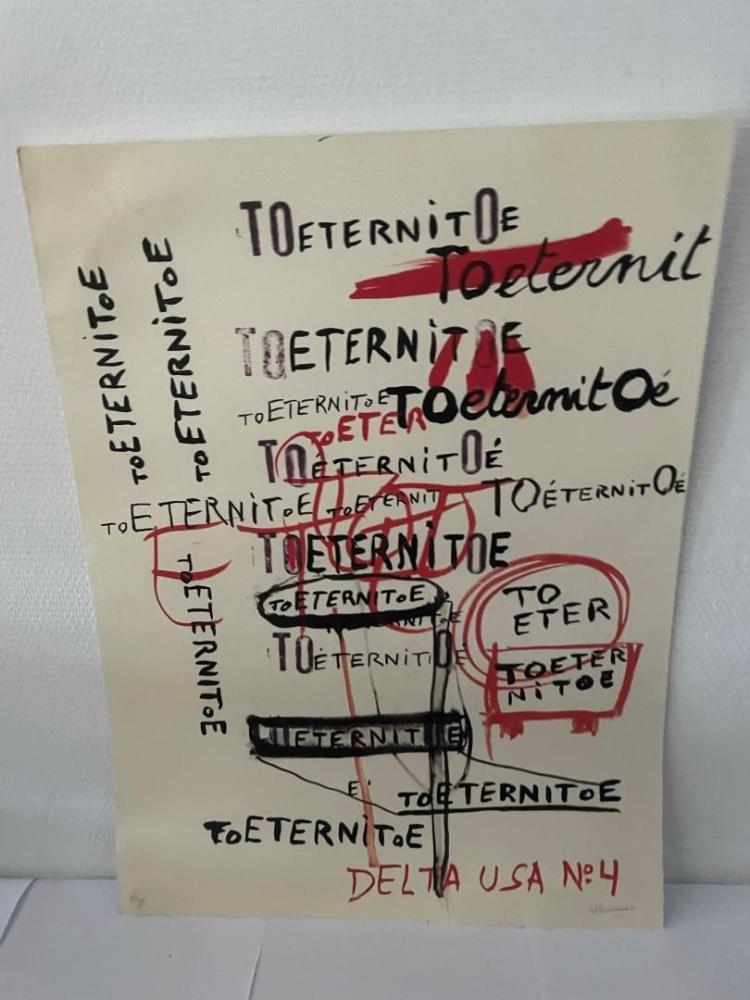 TOETERNiTOE
Toeternit
TOETERNiTOE
TOETERNiTOE
TOeternitOé
TOETER
TOÉTERNiTOÉ
TOETERNiTOE
TOETERNIT
TOÉTERNiTOé
TOETERNiTOE
TOETERNiTOE
TOETERNiTOE
TOETERNiTOE
TOETERNiTOE
TO
ETER
TOETER
NiTOE
TOÉTERNiTOÉ
ETERNIT E
E'
TOETERNITOE
TOETERNiTOE
DELTA USA Nº4